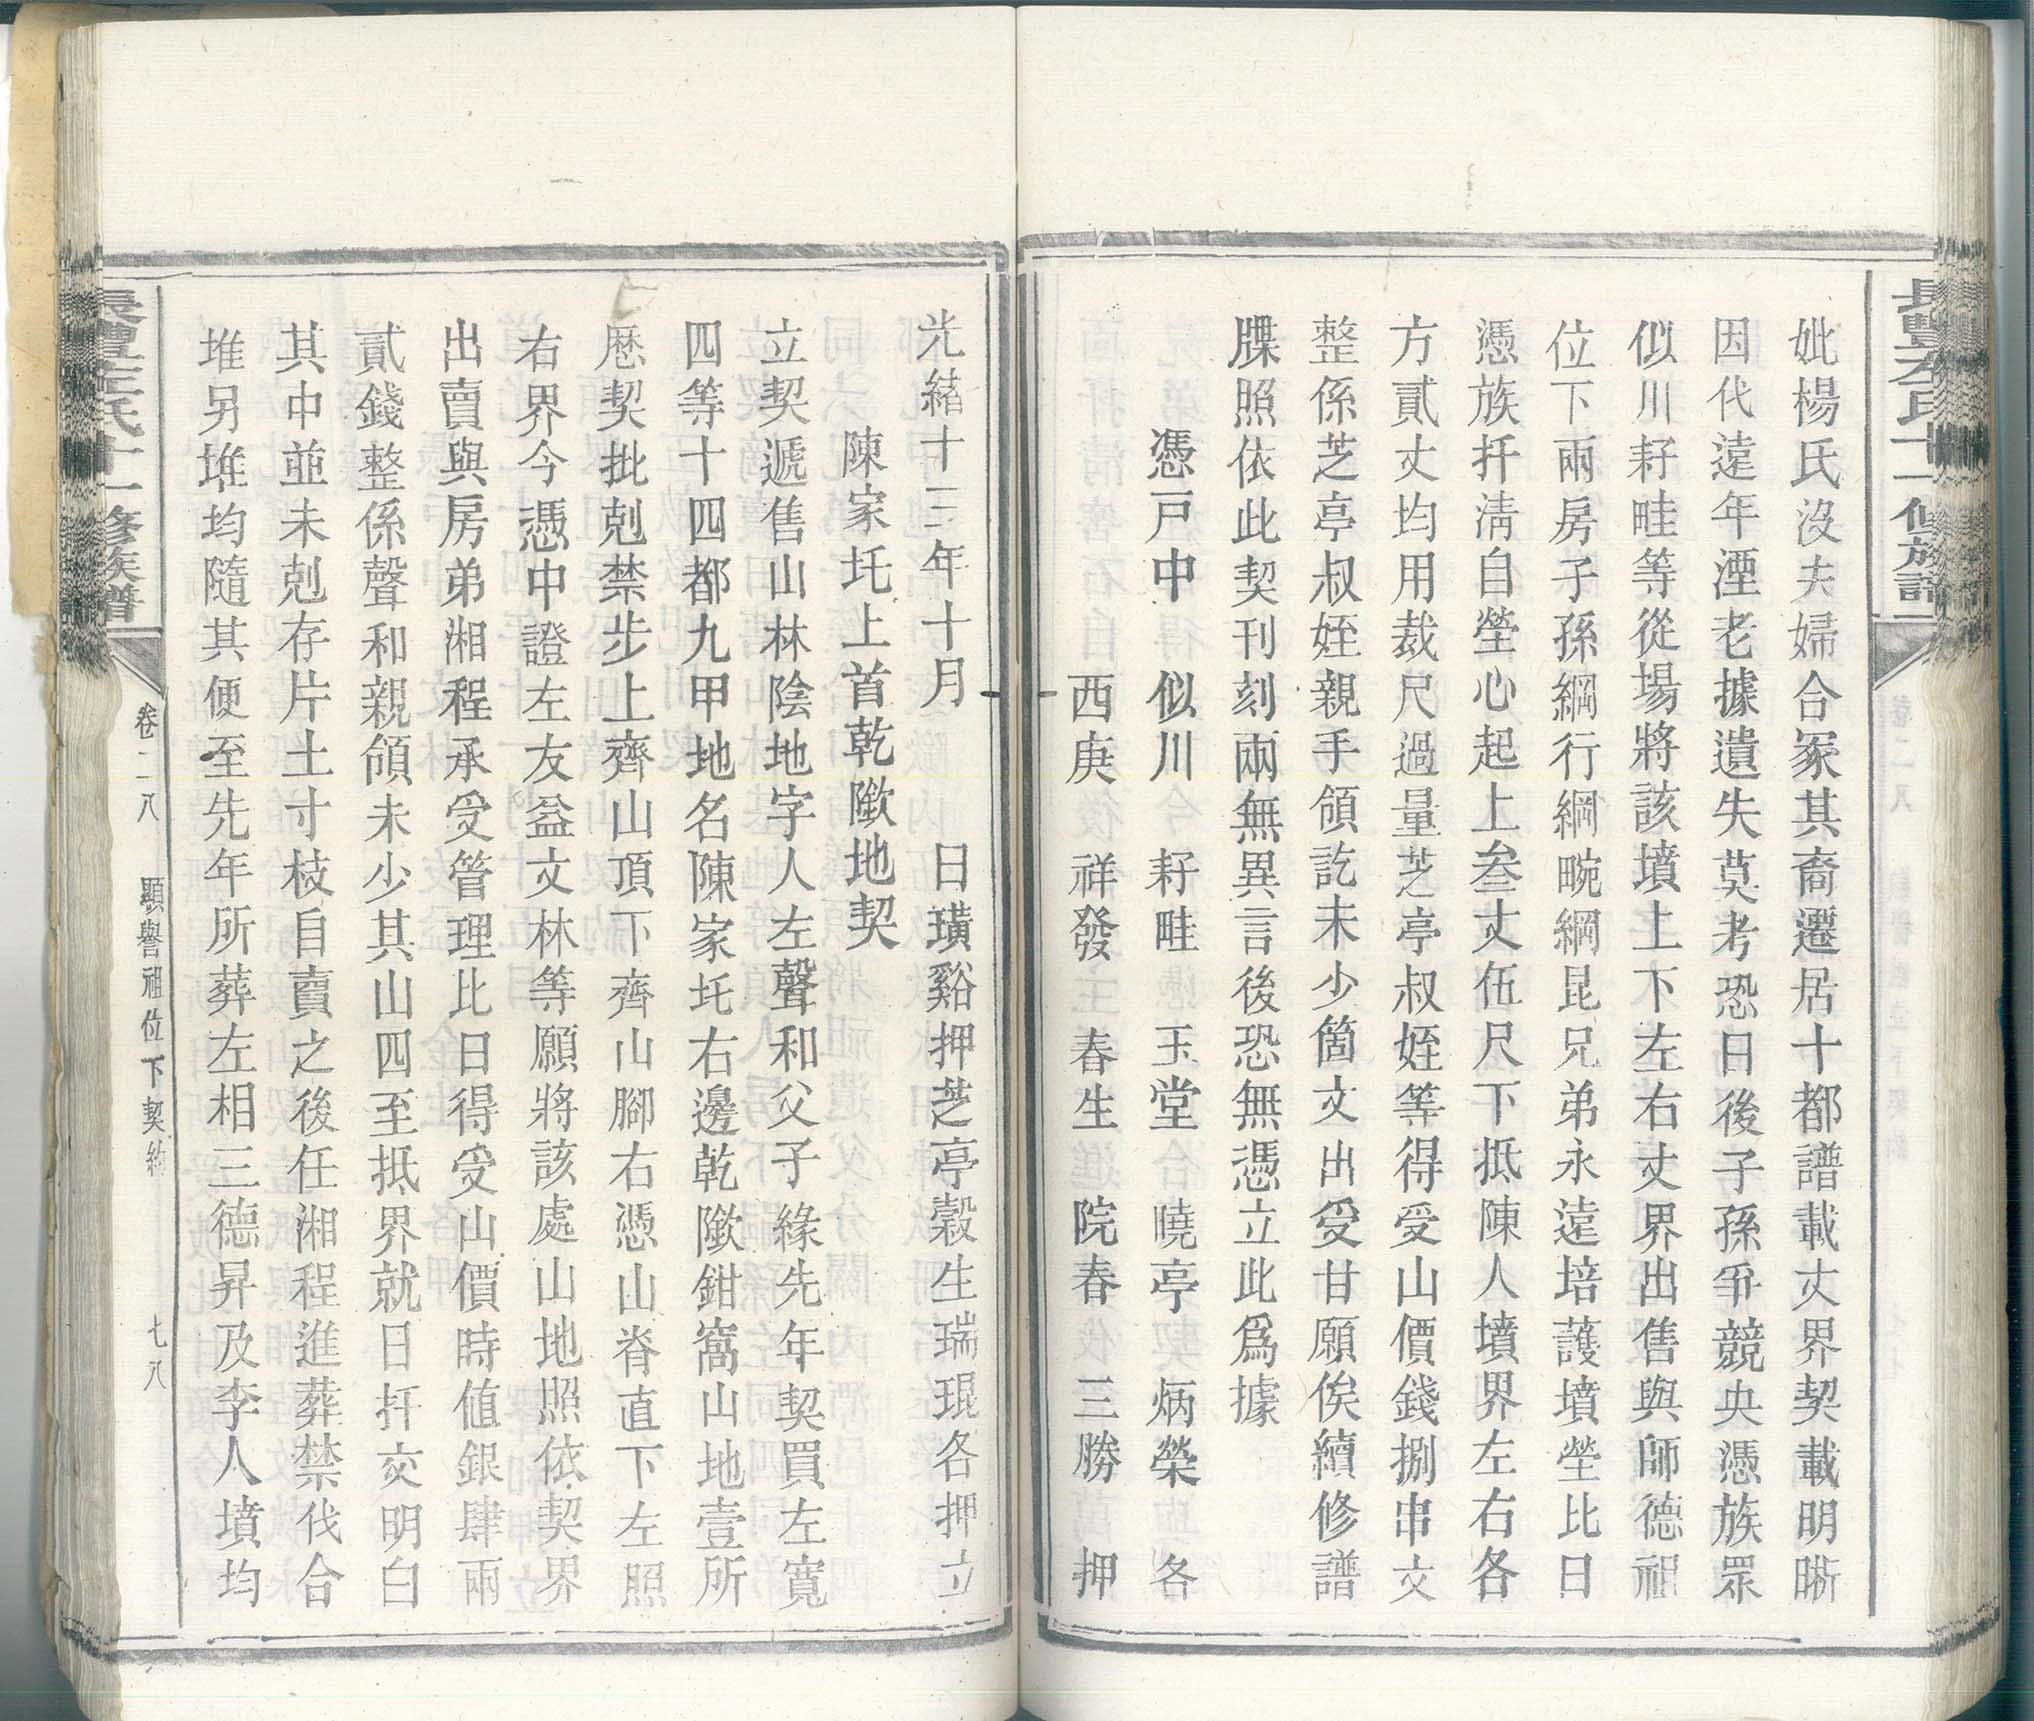 長豐左氏十一修族譜
妣楊氏沒夫婦合冢其裔遷居十都譜載丈界契載明晰
因代遠年湮老據遺失莫考恐日後子孫爭競央憑族眾
似川耔畦等從場將該墳上下左右丈界出售與師德祖
位下兩房子孫綱行綱畹綱昆兄弟永遠培護墳塋比日
憑族扦清自塋心起上叁丈伍尺下抵陳人墳界左右各
方貳丈均用裁尺過量芝亭叔姪等得受山價錢捌串文
整係芝亭叔姪親手領訖未少箇文出受甘願俟續修譜
牒照依此契刊刻兩無異言後恐無憑立此爲據
憑戸中 似川 耔畦 玉堂 曉亭 炳榮 各
西庚 祥發 春生 院春 三勝 押
光緒十二年十月 日璜谿押芝亭穀生瑞琨各押立
陳家圫上首乾歞地契
立契遞售山林陰地字人左聲和父子緣先年契買左寬
四等十四都九甲地名陳家圫右邊乾歞鉗窩山地壹所
厯契批剋禁步上齊山頂下齊山腳右憑山脊直下左照
右界今憑中證左友益文林等願將該處山地照依契界
出賣與房弟湘程承受管理比日得受山價時值銀肆兩
貳錢整係聲和親領未少其山四至抵界就日扦交明白
其中並未剋存片土寸枝自賣之後任湘程進葬禁伐合
堆另堆均隨其便至先年所葬左相三德昇及李人墳均
長豐左氏十一修族譜
卷二八 顯譽祖位下契約 七八